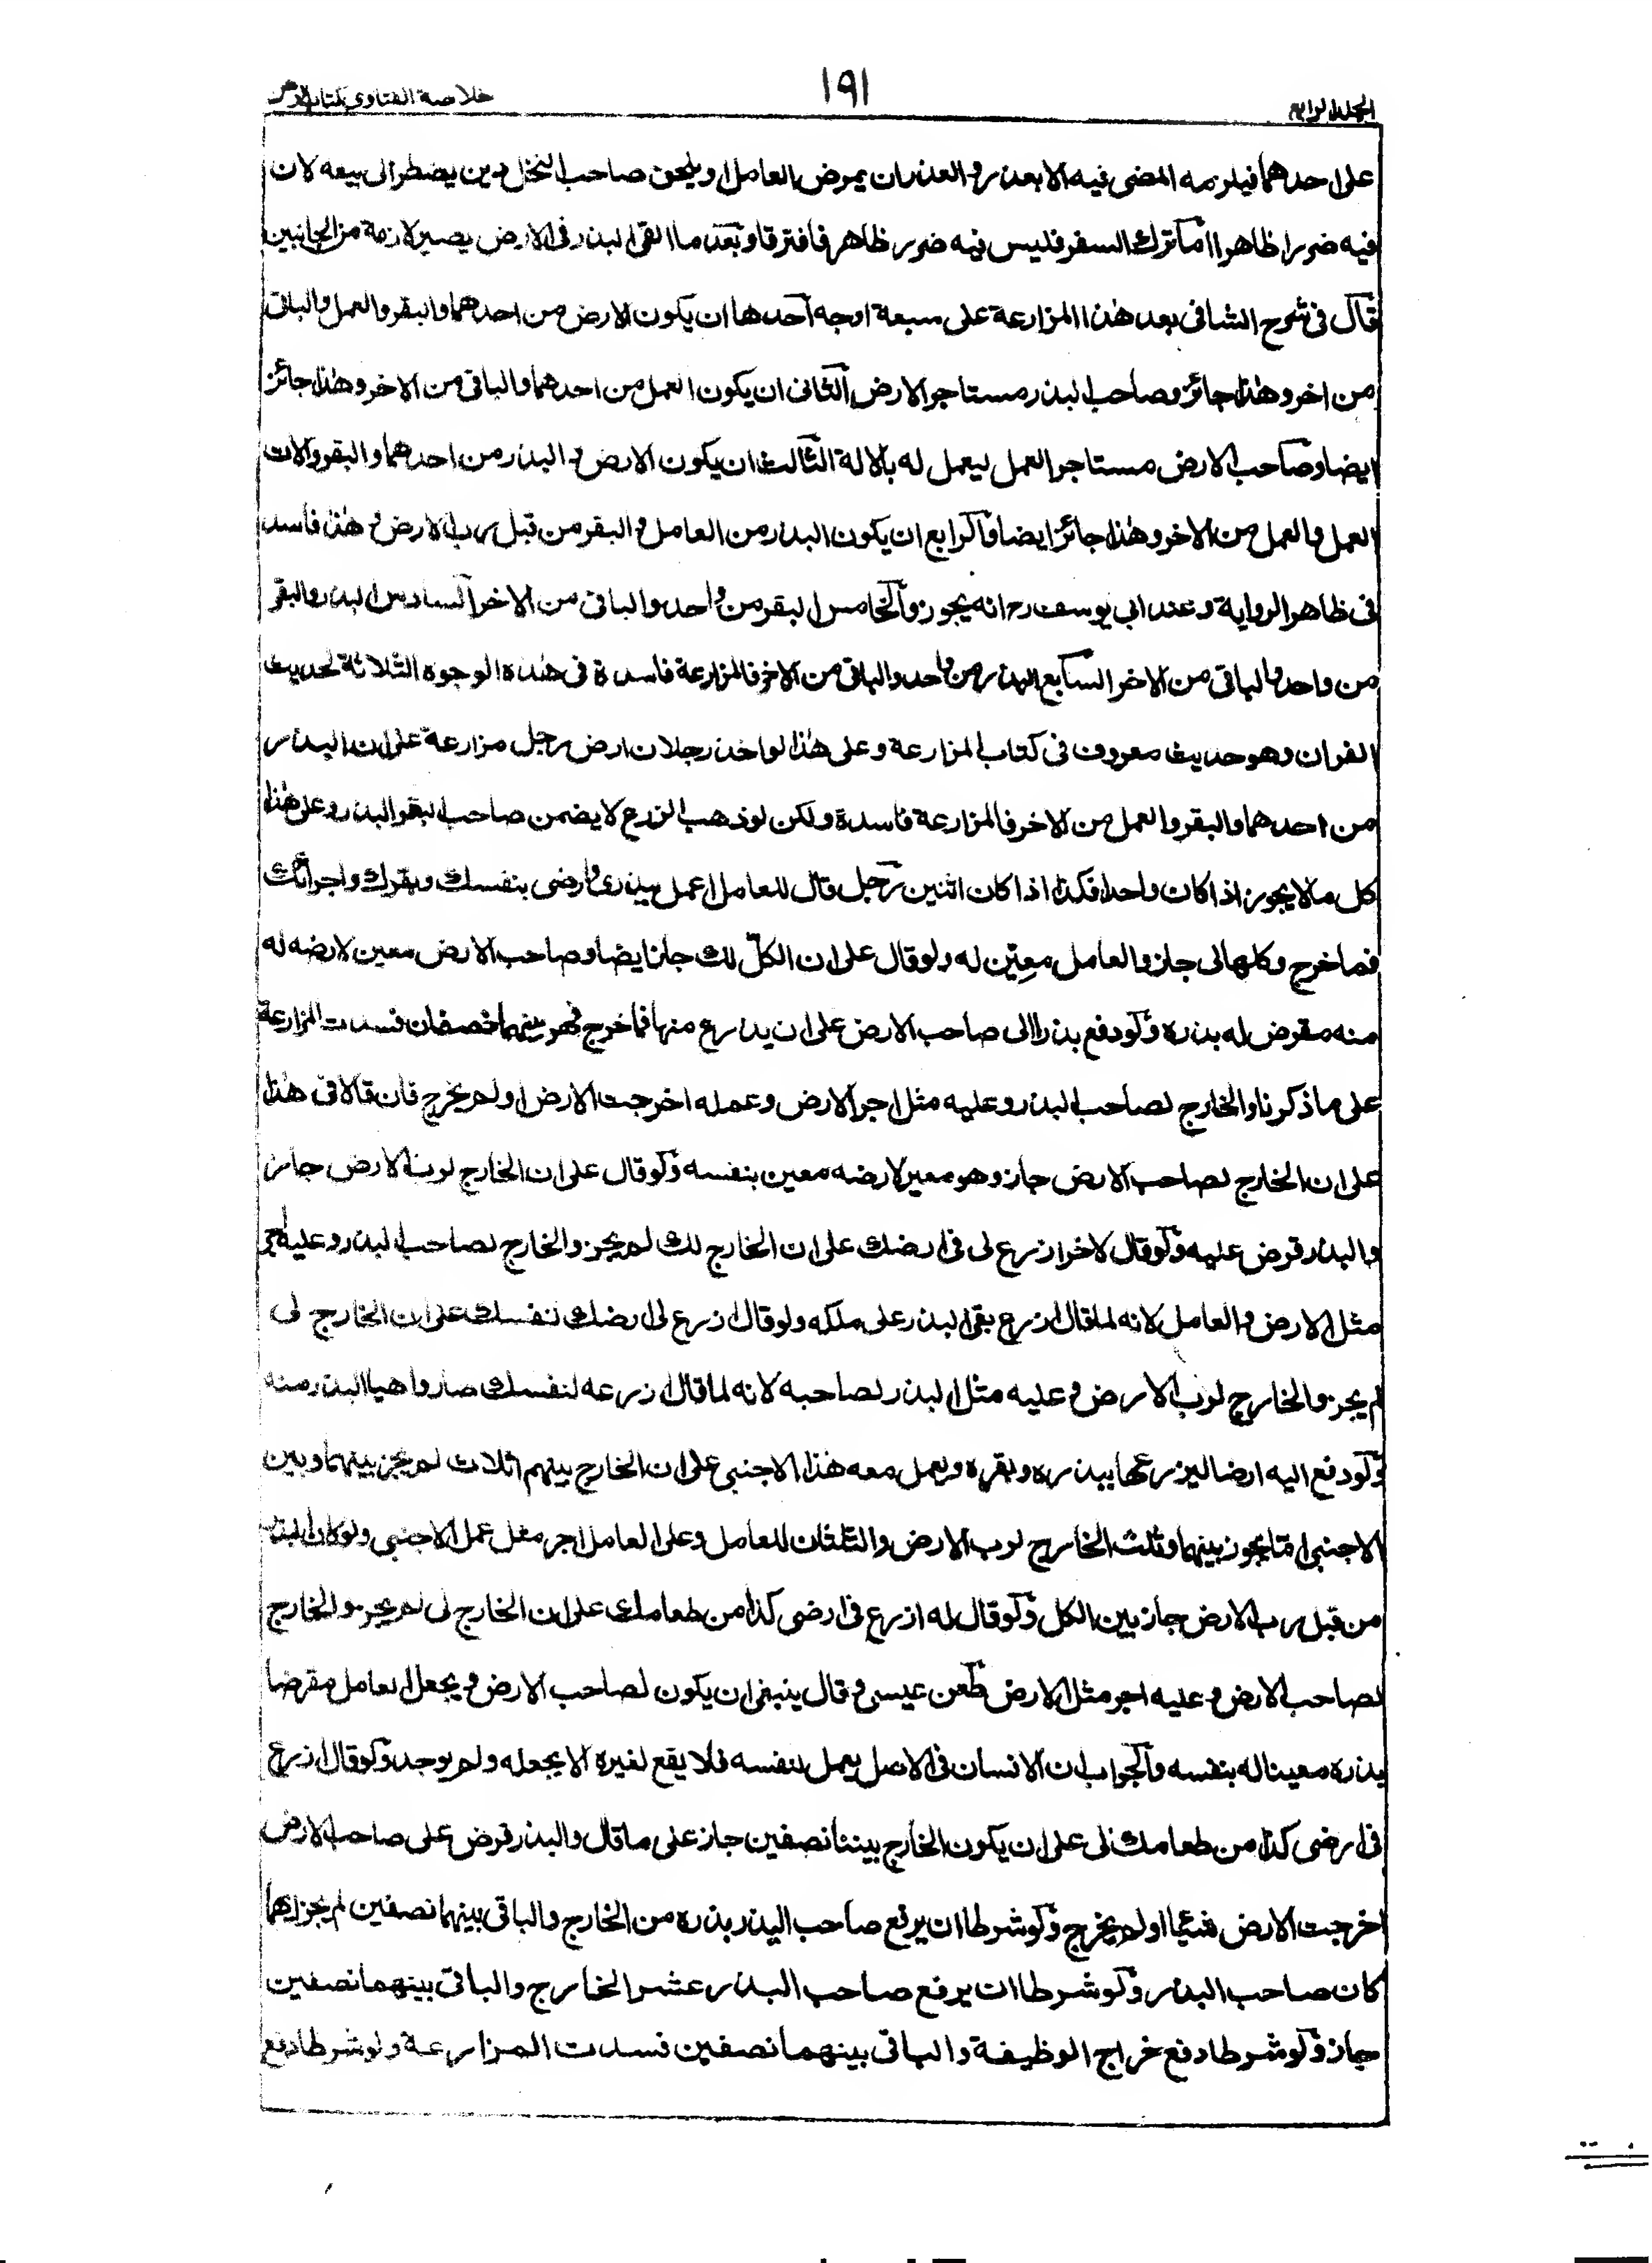 الجلد الرابع
١٩١
خلاصة الفتاوى كتاب
على احدهما فيلزمه المضى فيه الا بعذر والعذر ان يمرض العامل او يلحق صاحب النخل دين يضطر الى بيعه لان
فيه ضررا ظاهرا اما ترك السفر فليس فيه ضرر ظاهر فافترقا وبعد ما القى البذر فى الارض يصير لازمة من الجانبين
قال فى شرح الشافى بعد هذا المزارعة على سبعة اوجه احدها ان يكون الارض من احدهما والبقر والعمل والباقى
من اخر وهذا جائز وصاحب البذر مستاجر الارض الثانى ان يكون العمل من احدهما والباقى من الاخر وهذا جائز
ايضا وصاحب الارض مستاجر العمل ليعمل له بالالة الثالث ان يكون الارض و البذر من احدهما والبقر والات
العمل والعمل من الاخر وهذا جائز ايضا والرابع ان يكون البذر من العامل والبقر من قبل رب الارض و هذا فاسد
فى ظاهر الرواية وعند ابى يوسف رح انه يجوز والخامس البقر من واحد والباقى من الاخر السادس البذر والبقر
من واحد والباقى من الاخر السابع البذر من واحد والباقى من الاخر فالمزارعة فاسدة فى هذه الوجوه الثلاثة لحديث
الفران وهو حديث معروف فى كتاب المزارعة وعلى هذا لو اخذ رجلان ارض رجل مزارعة على ان البذر
من احدهما والبقر والعمل من الاخر فالمزارعة فاسدة ولكن لو ذهب الزرع لا يضمن صاحب البقر البذر وعلى هذا
كل ما لا يجوز اذا كان واحدا فكذا اذا كان اثنين رجل قال للعامل اعمل ببذرى وارضى بنفسك وبقرك واجرائك
فما خرج وكلها لى جاز والعامل معين له ولو قال على ان الكل لك جاز ايضا وصاحب الارض معين لارضه له
منه مقرض له بذره ولو دفع بذرا الى صاحب الارض على ان يذرع منها فما خرج فهو بينهما نصفان فسدت المزارعة
على ما ذكرنا والخارج لصاحب البذر وعليه مثل اجر الارض وعمله اخرجت الارض او لم يخرج فان قالا فى هذا
على ان الخارج لصاحب الارض جاز وهو معير لارضه معين بنفسه ولو قال على ان الخارج لرب الارض جاز
والبذر قرض عليه ولو قال لاخر ازرع لى فى ارضك على ان الخارج لك لم يجز والخارج لصاحب البذر وعليه اجر
مثل الارض والعامل لانه لما قال ازرع بقى البذر على ملكه ولو قال ازرع لى ارضك لنفسك على ان الخارج لى
لم يجز والخارج لرب الارض و عليه مثل البذر لصاحبه لانه لما قال ازرعه لنفسك صار واهبا البذر منه
ولو دفع اليه ارضا ليزرعها ببذره وبقره ويعمل معه هذا الاجنبى على ان الخارج بينهم اثلاث لم يجز بينهما وبين
الاجنبى انما يجوز بينهما وثلث الخارج لرب الارض والثلثان للعامل وعلى العامل اجر مثل عمل الاجنبى ولو كان البذر
من قبل رب الارض جاز بين الكل ولو قال له ازرع فى ارضى كذا من طعامك على ان الخارج لى لم يجز والخارج
لصاحب الارض و عليه اجر مثل الارض طعن عيسى و قال ينبغى ان يكون لصاحب الارض و يجعل العامل مقرضا
بذره معينا له بنفسه والجواب ان الانسان فى الاصل يعمل لنفسه فلا يقع لغيره الا يجعله ولم يوجد ولو قال ازرع
فى ارضى كذا من طعامك لى على ان يكون الخارج بيننا نصفين جاز على ما قال والبذر قرض على صاحب الارض
اخرجت الارض شيئا او لم يخرج ولو شرطا ان يرفع صاحب البذر بذره من الخارج والباقى بينهما نصفين لم يجز ايهما
كان صاحب البذر ولو شرطا ان يرفع صاحب البذر عشر الخارج والباقى بينهما نصفين
جاز ولو شرطا دفع خراج الوظيفة والباقى بينهما نصفين فسدت المزارعة ولو شرطا دفع